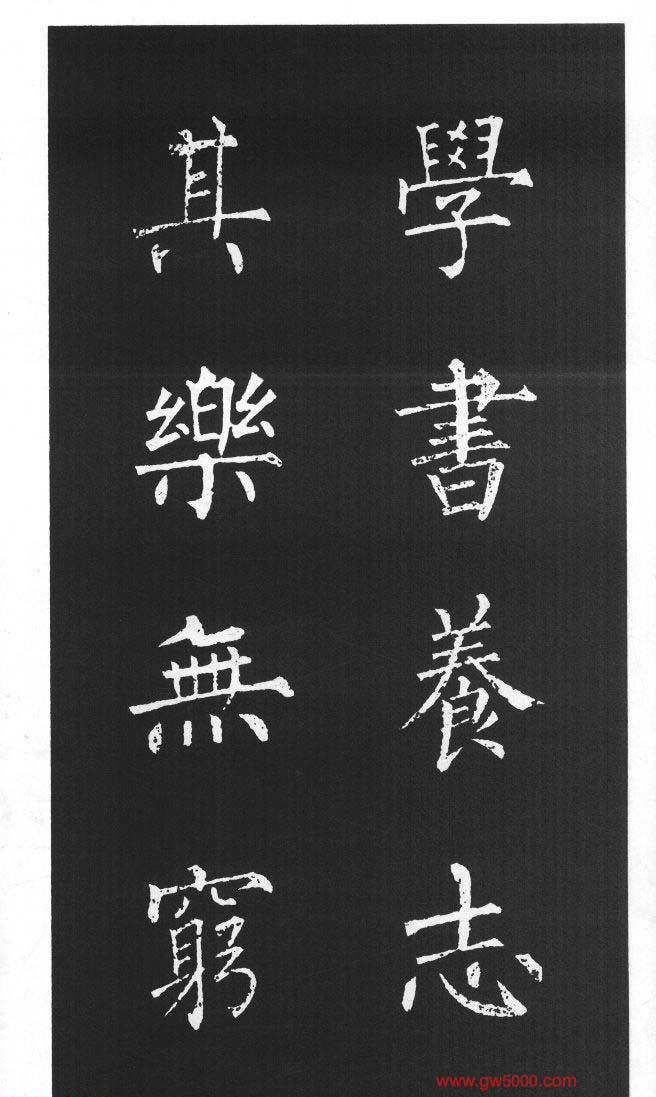 學書養志
其樂無窮
www.gw5000.com